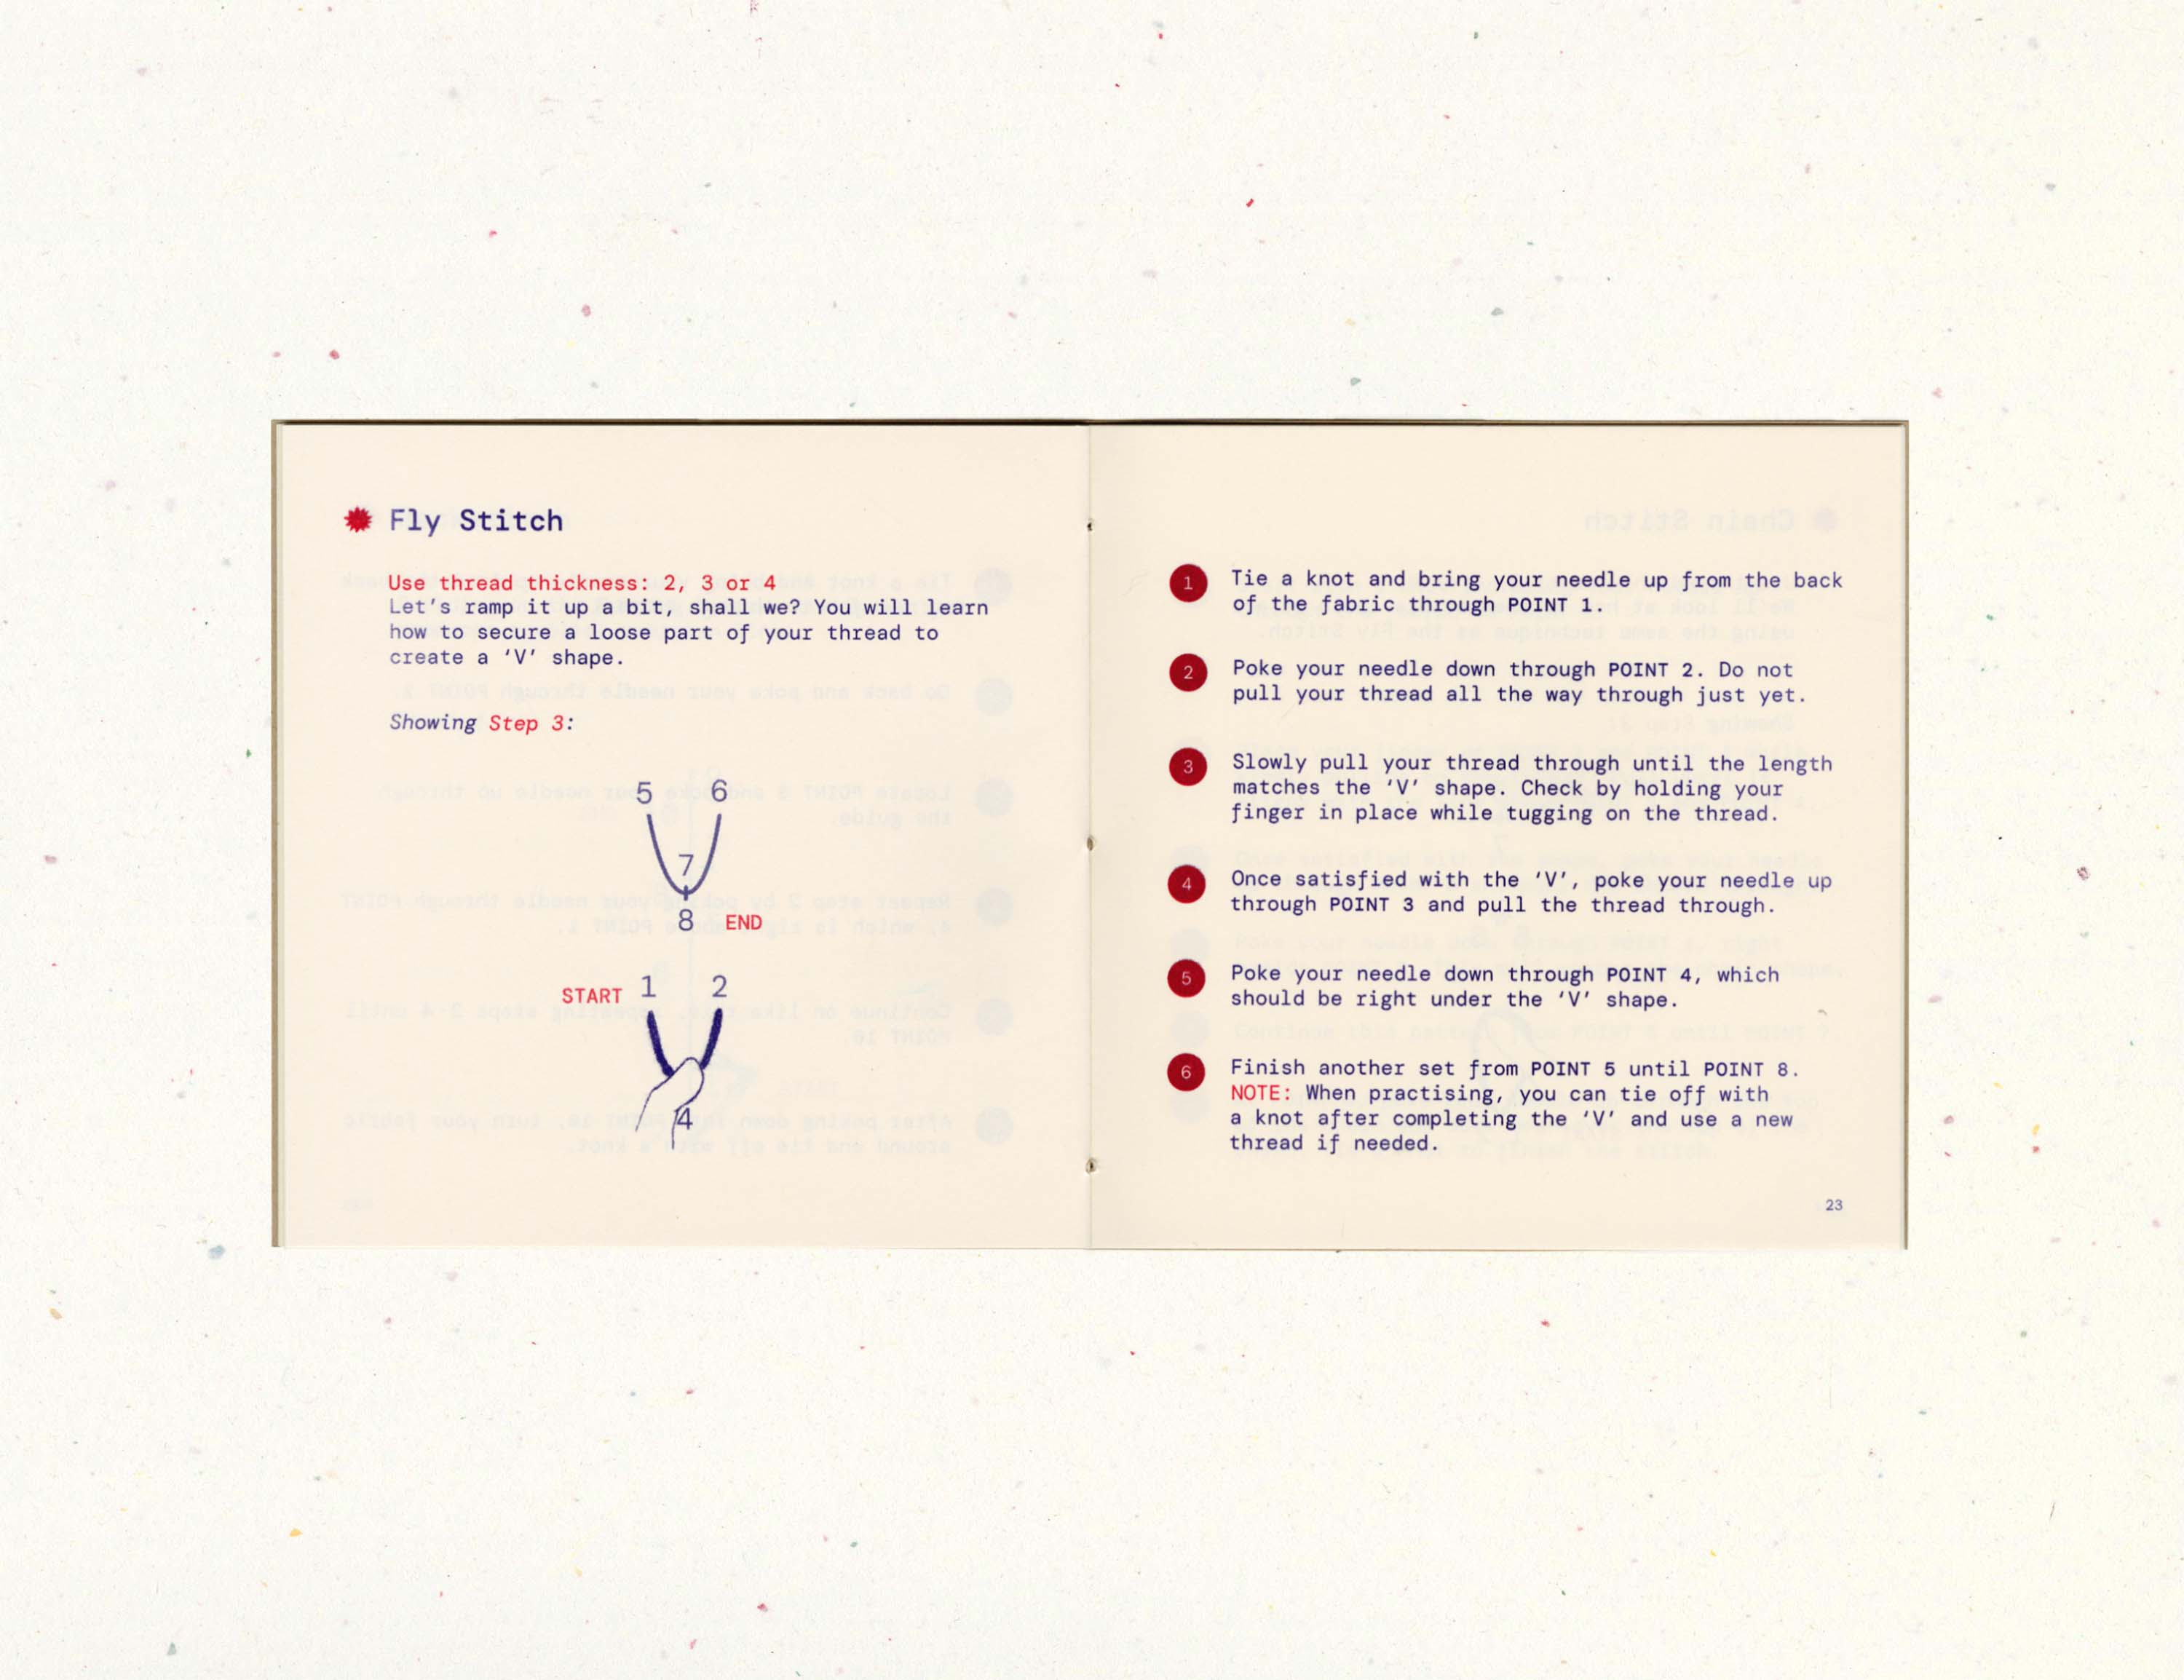 Fly Stitch
Use thread thickness: 2, 3 or 4
Let's ramp it up a bit, shall we? You will learn
how to secure a loose part of your thread to
create a ‘V’ shape.
Showing Step 3:
5 6
7
8 END
START 1 2
4
1 Tie a knot and bring your needle up from the back
of the fabric through POINT 1.
2 Poke your needle down through POINT 2. Do not
pull your thread all the way through just yet.
3 Slowly pull your thread through until the length
matches the ‘V’ shape. Check by holding your
finger in place while tugging on the thread.
4 Once satisfied with the ‘V’, poke your needle up
through POINT 3 and pull the thread through.
5 Poke your needle down through POINT 4, which
should be right under the ‘V’ shape.
6 Finish another set from POINT 5 until POINT 8.
NOTE: When practising, you can tie off with
a knot after completing the ‘V’ and use a new
thread if needed.
23